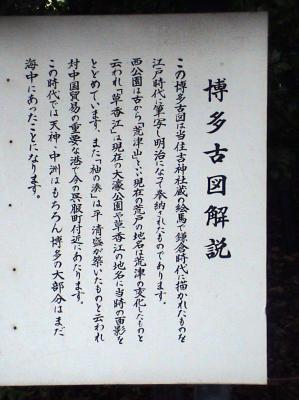 博多古図解説
この博多古図は当住吉神社蔵の絵馬で鎌倉時代に描かれたものを
江戸時代に筆写し明治になって奉納されたものであります。
西公園は古から「荒津山」といい現在の荒戸の地名は荒津の変化したものと
云われ「草香江」は現在の大濠公園や草香江の地名に当時の面影を
とどめています。また「袖の湊」は平清盛が築いたものと云われ
対中国貿易の重要な港で今の呉服町付近にあたります。
この時代では天神、中洲はもちろん博多の大部分はまだ
海中にあったことになります。